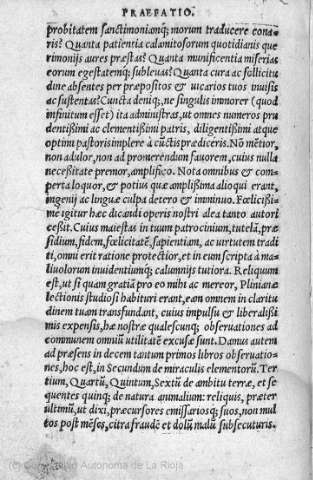 PRAEFATIO.
probitatem sanctimoniamq́; morum traducere cona
ris? Quanta patientia calamitosorum quotidianis que
rimonijs aures præstas? Quanta munificentia miserias
eorum egestatemq́; subleuas? Quanta cura ac sollicitu
dine absentes per præpositos & uicarios tuos inuisis
ac sustentas? Cuncta deniq;, ne singulis immorer (quod
infinitum esset) ita administras, ut omnes numeros pru
dentißimi ac clementißimi patris, diligentißimi atque
optimi pastoris implere à cũctis prædiceris. Nō mētior,
non adulor, non ad promerendum fauorem, cuius nulla
necesßitate premor, amplifico. Nota omnibus & com
perta loquor, & potius quæ amplißima alioqui erant,
ingenij ac linguæ culpa detero & imminuo. Fœlicißi
me igitur hæc dicandi operis nostri dea tanto autori
ceßit. Cuius maiestas in tuum patrocinium, tutelā, præ
sidium, fidem, fœlicitatē, sapientiam, ac uirtutem tradi
ti, omni erit ratione protectior, et in eum scripta à ma
liuolorum inuidentiumq́; calumnijs tutiora. Reliquum
est, ut si quam gratiā pro eo mihi ac mereor, Plinianæ
lectionis studiosi habituri erant, eam omnem in claritu
dinem tuam transfundant, cuius impulsu & liberalißi
mis expensis, hæ nostræ qualescunq; obseruationes ad
communem omniũ utilitatē excusæ sunt. Damus autem
ad præsens in decem tantum primos libros obseruatio-
nes, hoc est, in Secundũm de miraculis elementorũ. Ter
tium, Quartũ, Quintum, Sextũ de ambitu terræ, et se
quentes quinq; de natura animalium: reliquis, præter
ultimũ, ut dixi, præcursores emissariosq́; suos, non mul
tos post mēses, citra fraudē et dolũ malũ subsecuturis.
(c) Autonoma de La Rioja